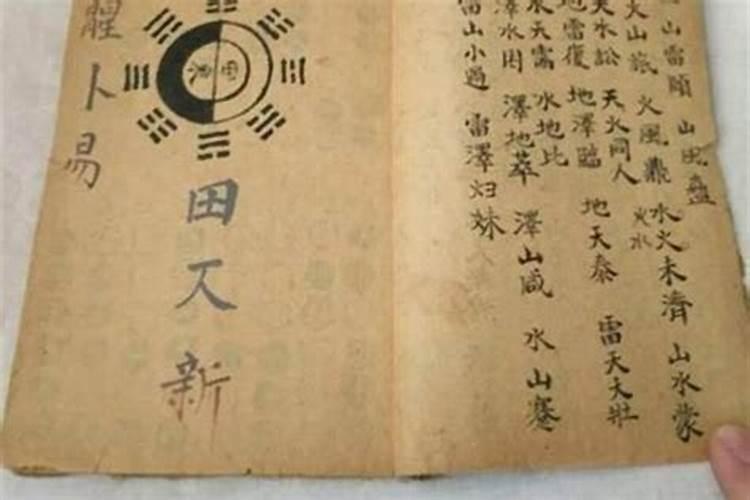 山雷頤
山風蠱
火山旅
火風鼎
水火未濟
火水
山水蒙
天水訟
天火同人
地雷復
地澤臨
地天泰
雷天大壯
水天需
水地比
澤水困
澤地萃
澤山咸
水山蹇
雷山小過
雷澤归妹
田
新
卜易